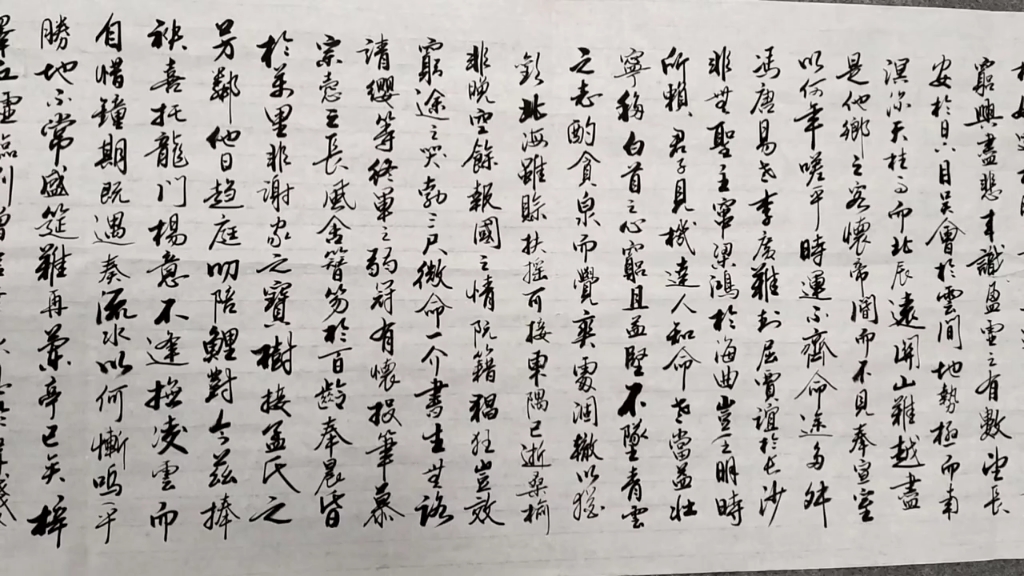 窮興盡悲來識盈虛之有數望長
安於日下目吳會於雲間地勢極而南
溟深天柱高而北辰遠關山難越盡
是他鄉之客懷帝閽而不見奉宣室
以何年嗟乎時運不齊命途多舛
馮唐易老李廣難封屈賈誼於長沙
非無聖主竄梁鴻於海曲豈乏明時
所賴君子見機達人知命老當益壯
寧移白首之心窮且益堅不墜青雲
之志酌貪泉而覺爽處涸轍以猶
歡北海雖賒扶搖可接東隅已逝桑榆
非晚空餘報國之情阮籍猖狂豈效
窮途之哭勃三尺微命一介書生無路
請纓等終軍之弱冠有懷投筆慕
宗愨之長風舍簪笏於百齡奉晨昏
於萬里非謝家之寶樹接孟氏之
芳鄰他日趨庭叨陪鯉對今茲捧
袂喜托龍門楊意不逢撫凌雲而
自惜鐘期既遇奏流水以何慚嗚乎
勝地不常盛筵難再蘭亭已矣梓
澤丘虛臨別贈言